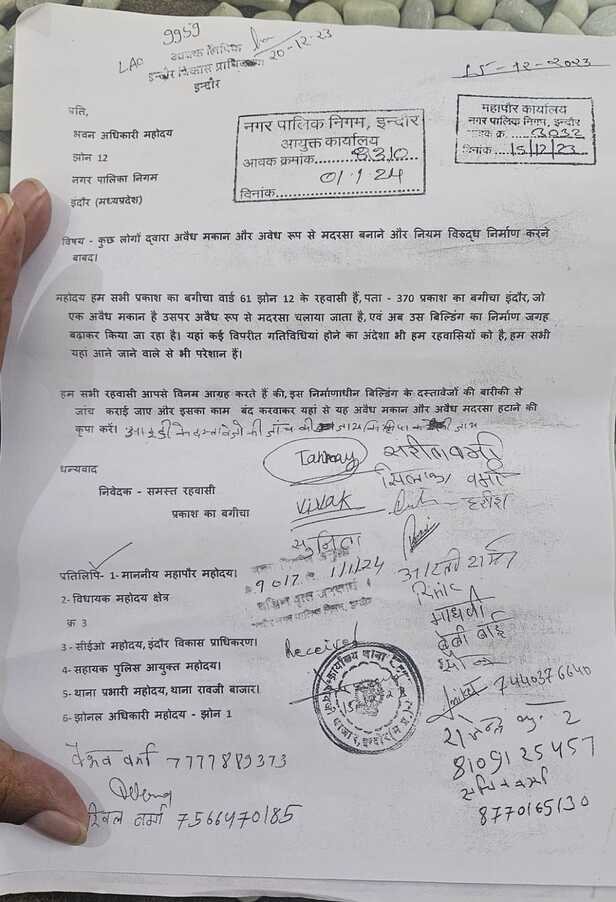 9959
LAO आवक लिपिक 20-12-23
इन्दौर विकास प्राधिकरण
इन्दौर
15-12-2023
प्रति,
भवन अधिकारी महोदय
झोन 12
नगर पालिका निगम
इंदौर (मध्यप्रदेश)
नगर पालिक निगम, इन्दौर
आयुक्त कार्यालय
आवक क्रमांक....8310....
01.1.24
दिनांक..............................
महापौर कार्यालय
नगर पालिक निगम, इन्दौर
आवक क्र. .....3032
दिनांक....15/12/23....
विषय - कुछ लोगों द्वारा अवैध मकान और अवेध रूप से मदरसा बनाने और नियम विरुद्ध निर्माण करने
बाबद।
महोदय हम सभी प्रकाश का बगीचा वार्ड 61 झोन 12 के रहवासी हैं, पता - 370 प्रकाश का बगीचा इंदौर, जो
एक अवैध मकान है उसपर अवैध रूप से मदरसा चलाया जाता है, एवं अब उस बिल्डिंग का निर्माण जगह
बढ़ाकर किया जा रहा है। यहां कई विपरीत गतिविधियां होने का अंदेशा भी हम रहवासियों को है, हम सभी
यहा आने जाने वाले से भी परेशान हैं।
हम सभी रहवासी आपसे विनम्र आग्रह करते हैं की, इस निर्माणाधीन बिल्डिंग के दस्तावेजों की बारीकी से
जांच कराई जाए और इसका काम बंद करवाकर यहां से यह अवैध मकान और अवैध मदरसा हटाने की
कृपा करें।
धन्यवाद
निवेदक - समस्त रहवासी
प्रकाश का बगीचा
Tanmay
Vivak
हरीश
सुनिता
9017 1/1/24
Received
माधवी
बेबी बाई
प्रतिलिपि- 1- माननीय महापौर महोदय।
2- विधायक महोदय क्षेत्र
क्र 3
3 - सीईओ महोदय, इंदौर विकास प्राधिकरण।
4- सहायक पुलिस आयुक्त महोदय।
5- थाना प्रभारी महोदय, थाना रावजी बाजार।
6- झोनल अधिकारी महोदय - झोन 1
Aniket 7440376640
8109125457
8770165130
वर्मा 7777889373
वर्मा 7566470185